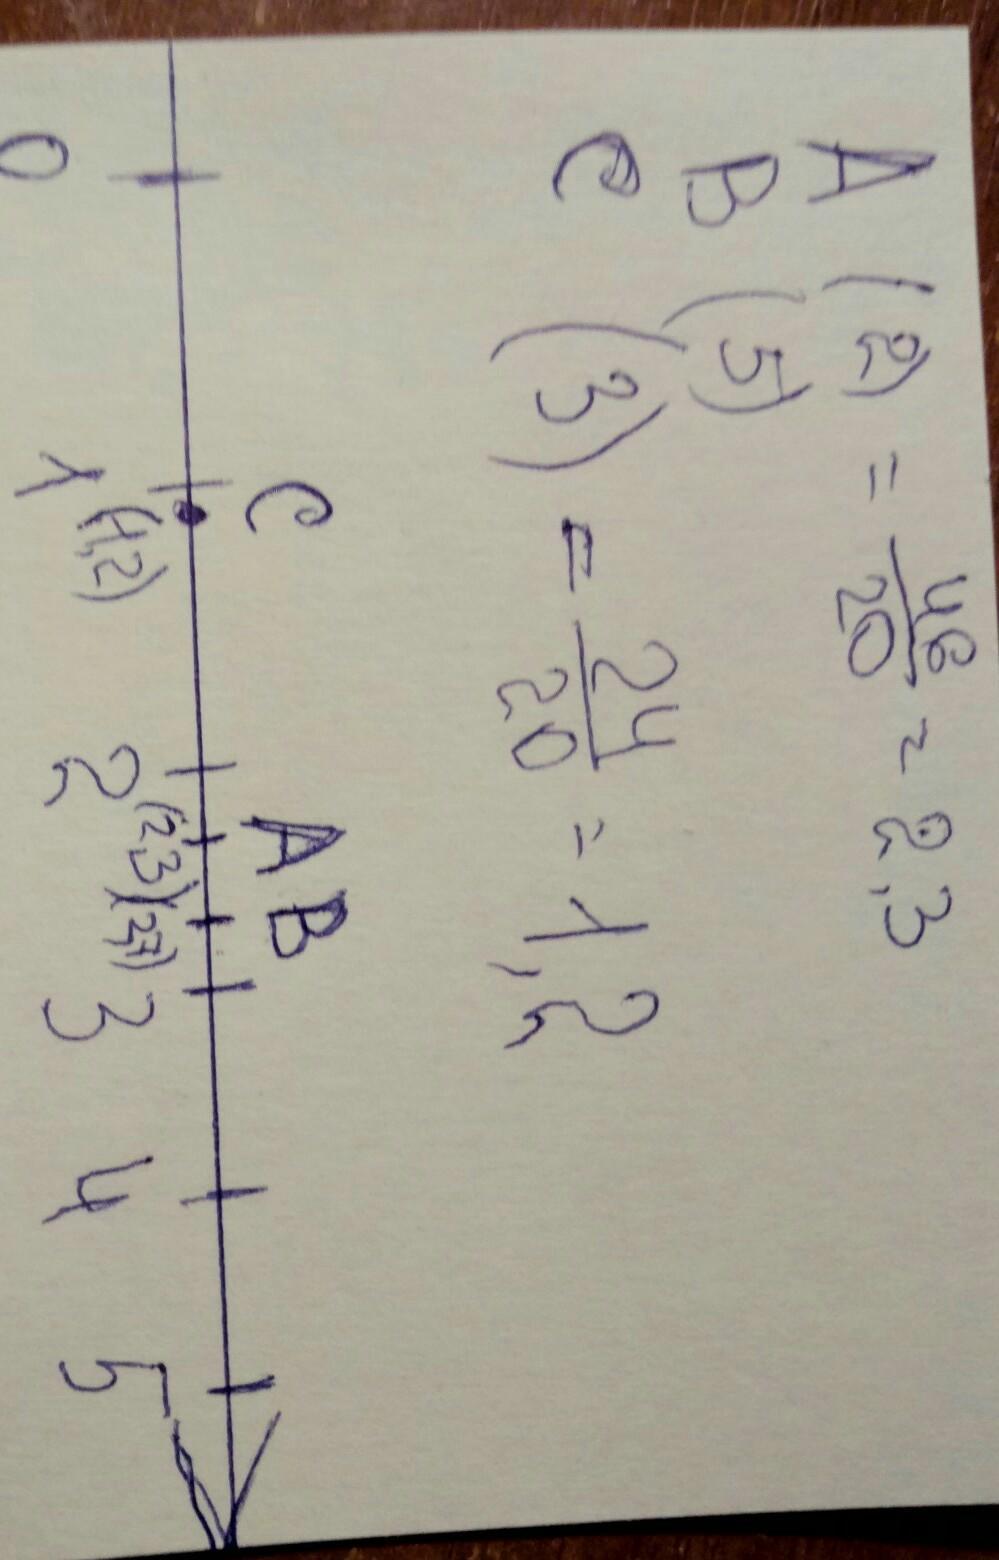 A (2) = 46/20 = 2,3
B (5)
C (3) = 24/20 = 1,2
C A B
(1,2) (2,3) (2,7)
0 1 2 3 4 5